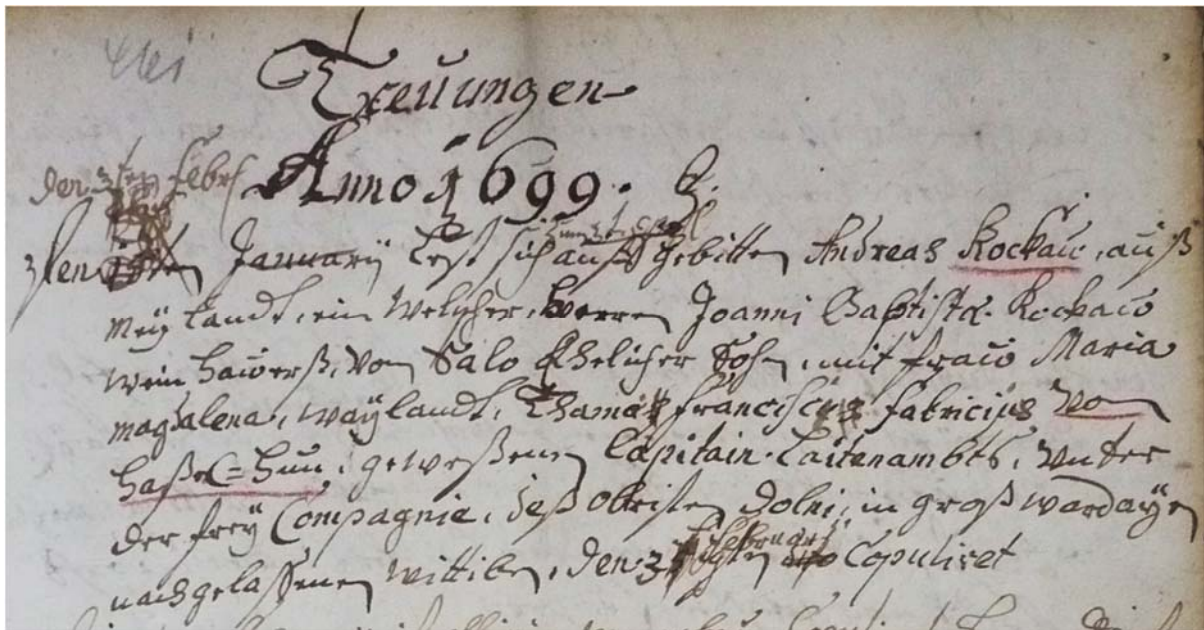 Treuungen
Anno 1699.
den 3ten Febr
Januarij Lest sich auß gebitten Andreas Kockau, auß
Meylandt, ein Welscher, Herren Joanni Baptista Kockau
wein hauerß, von Salo Ehelicher Sohn, mit frau Maria
Magdalena, waylandt, Thamas franciscus fabricius von
Haßel=Hun, geweßenen Capitain-Laitenambts, Unter
der freÿ Compagnie, deß obristen Dolni, in groß wardayen
nachgelaßenen wittiben, den 3 February Copuliret